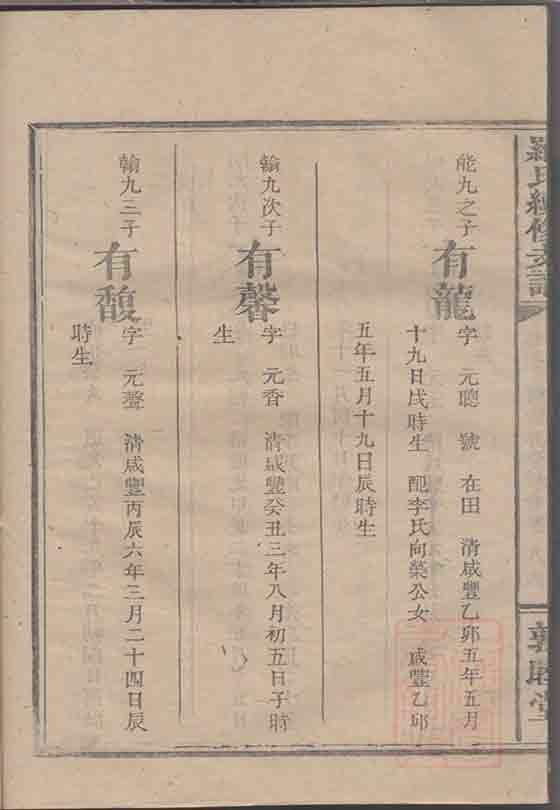 羅氏經修支譜
敦睦堂
能九之子
有龍
字 元聰 號 在田 清咸豐乙卯五年五月
十九日戌時生 配李氏向榮公女 咸豐乙邜
五年五月十九日辰時生
翰九次子
有馨
字 元香 清咸豐癸丑三年八月初五日子時
生
翰九三子
有馥
字 元聲 清咸豐丙辰六年三月二十四日辰
時生